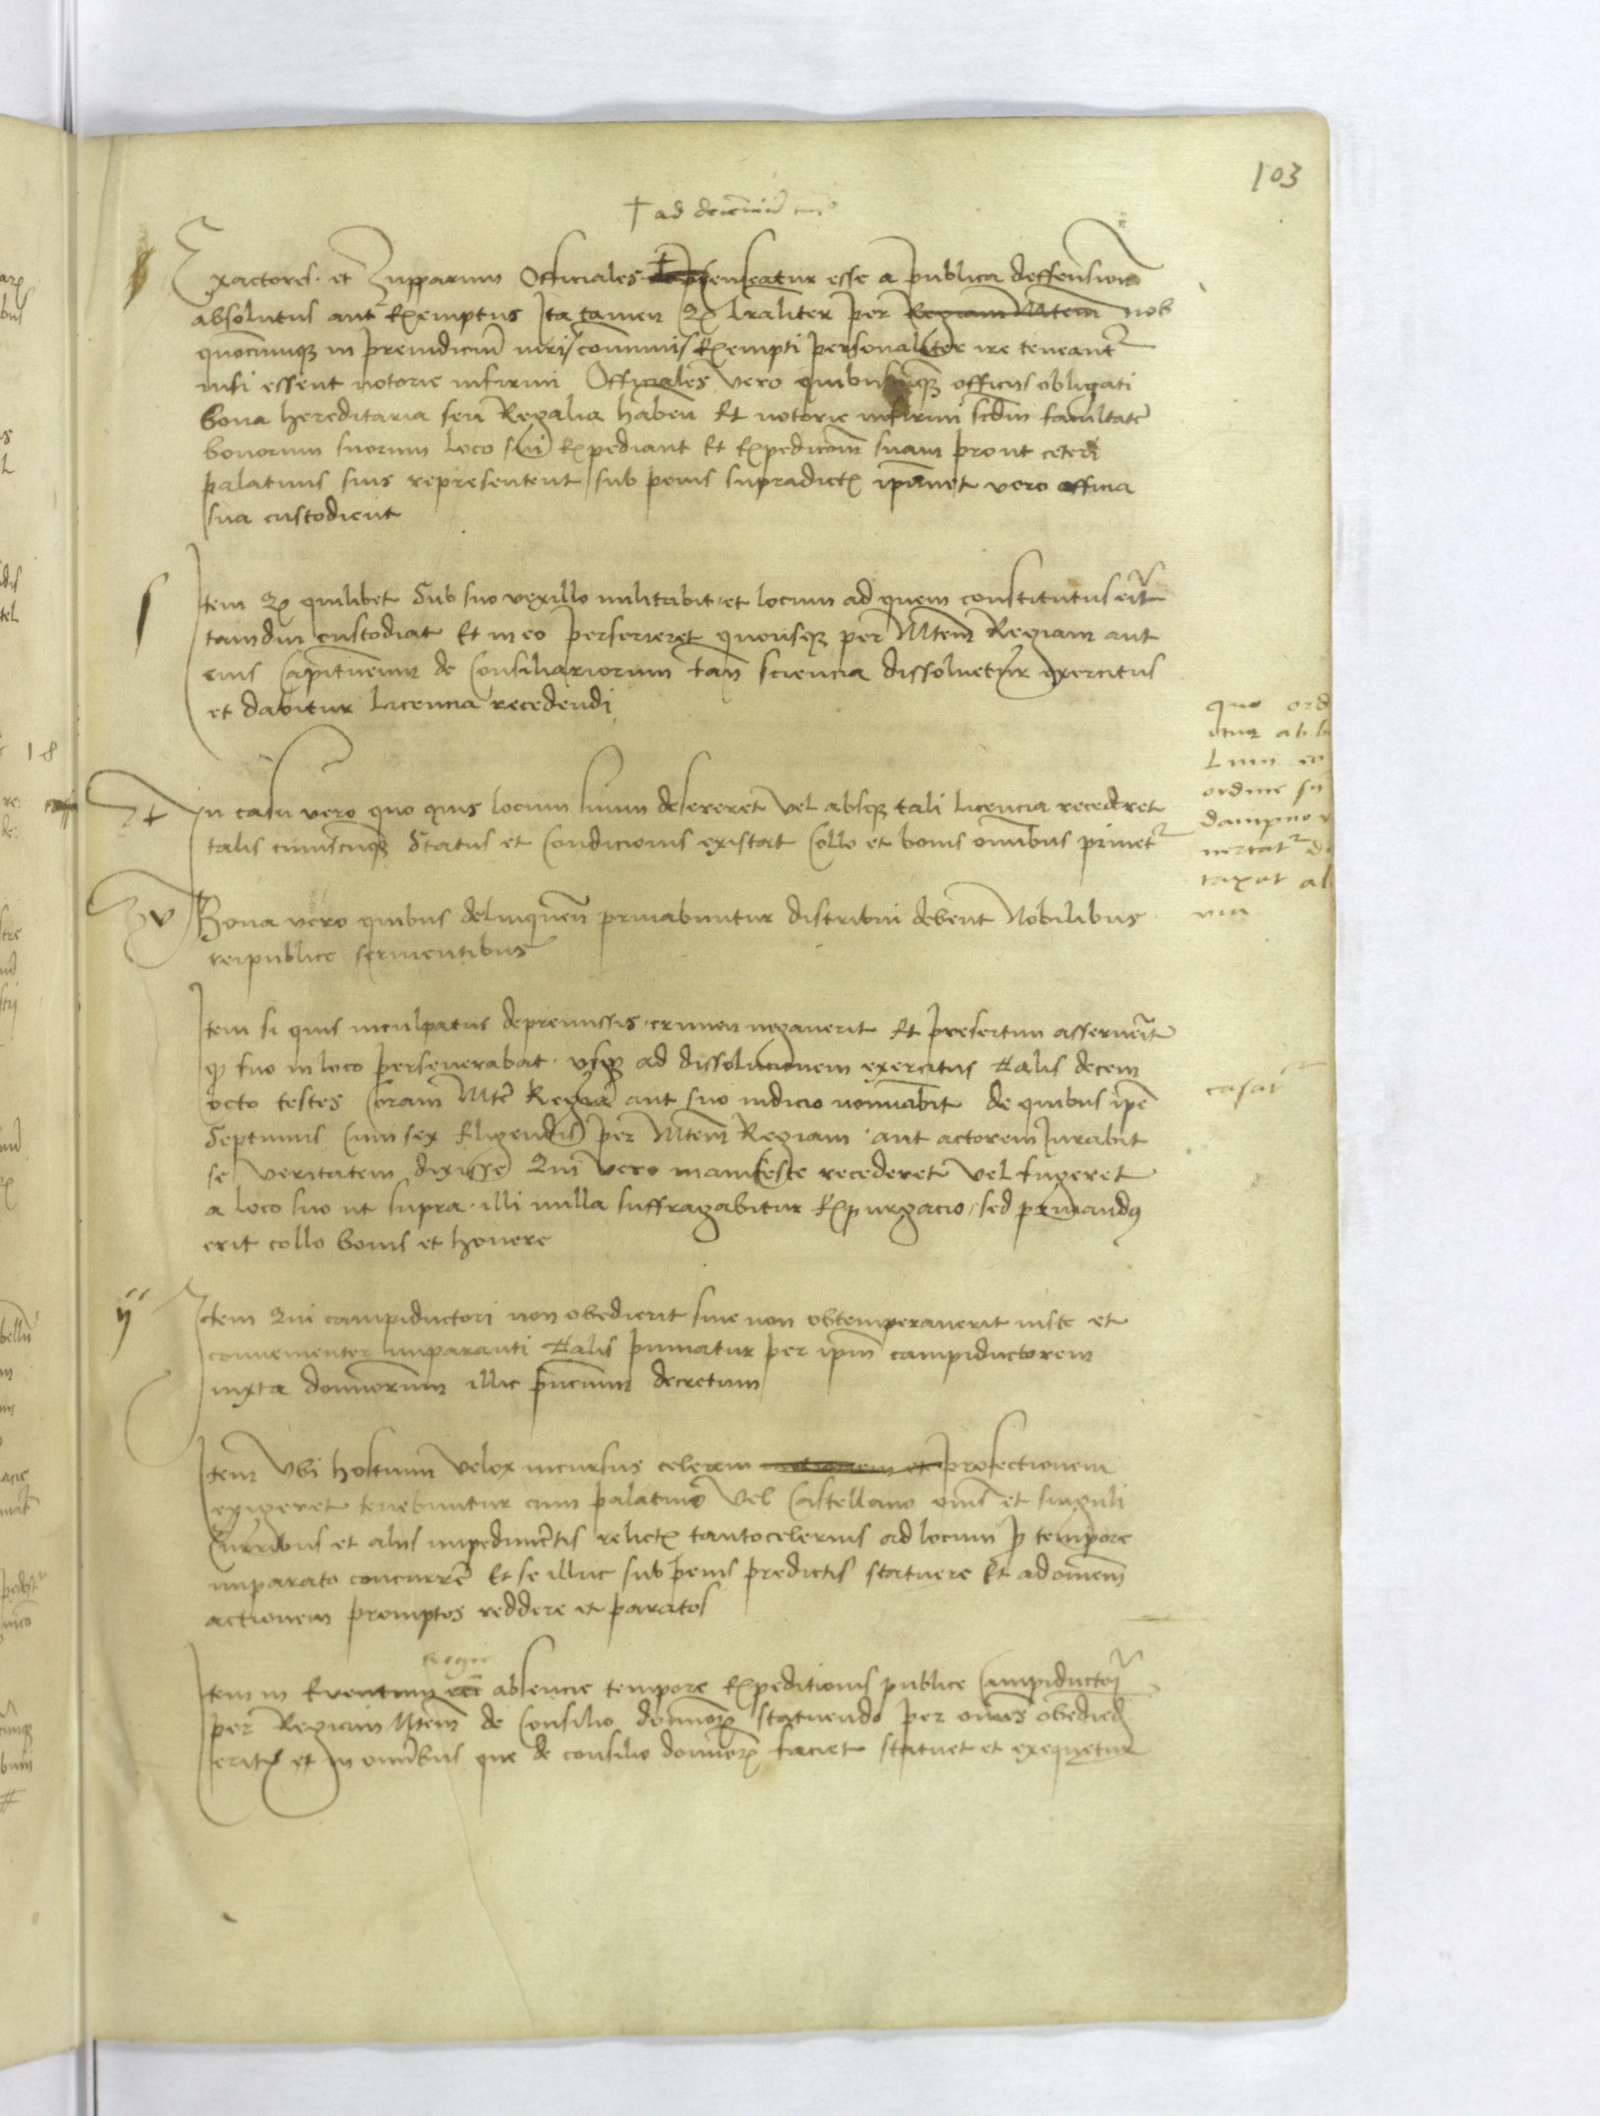 103
† ad decenniū
Exactores et Zupparum Officiales † censeatur esse a publica deffensione
absolutus aut Exemptus Ita tamen Q lraliter per Regiam Mtem nob
quocumque in preiudiciū iuris communis Exempti personaliter ire teneant
nisi essent notorie infirmi Officiales vero quibuscūque officiis obligati
bona hereditaria seu Regalia haben Et notorie infirmi scdm facultatē
bonorum suorum loco sui Expediant Et Expedicōm suam prout ceteri
palatinis suis representent sub penis supradictis ipimet vero officia
sua custodient
Item Q quilibet Sub suo vexillo militabit et locum ad quem constitutus erit
tamdiu custodiat Et in eo perseveret quousque per Mtem Regiam aut
eius Capitueum de Consiliariorum tam sciencia dissoluetur exercitus
et dabitur licencia recedendi
In casu vero quo quis locum suum desereret vel absque tali licencia recederet
talis cuiuscumque Status et Condicionis existat Collo et bonis omnibus priuet
Bona vero quibus delinquen priuabuntur distribui debent Nobilibus
reipublice seruientibus
Item si quis inculpatus de premissis crimen negauerit Et presertim asseruerit
q suo in loco perseuerabat usque ad dissolucionem exercitus talis decem
octo testes Coram Mte Regia aut suo iudicio nominabit de quibus ipe
Septimus Cum sex Eligendis per Mtem Regiam aut actorem Jurabit
se veritatem dixisse Qui vero manifeste recederet vel fugeret
a loco suo ut supra illi nulla suffragabitur Expurgacio sed priuandus
erit collo bonis et honore
casat
ij Item Qui campiductori non obedierit siue non obtemperauerit iuste et
conuenienter imparanti talis puniatur per ipm campiductorem
iuxta dominorum illic pncium decretum
Item Vbi hostium velox incursus celerem profectionem
exigeret tenebuntur cum palatino vel Castellano oms et singuli
Curribus et aliis impedimētis relictis tantocelerius ad locum p tempore
imparato concurrē Et se illuc sub penis predictis statuere Et ad omem
actionem promptos reddere et paratos
Item in Euentum Regie absencie tempore Expeditionis publice Campiductori
per Regiam Mtem de Consilio dominorum statuendo per omnes obedied
erit et in omnibus que de consilio dominorum faciet statuet et exequetur